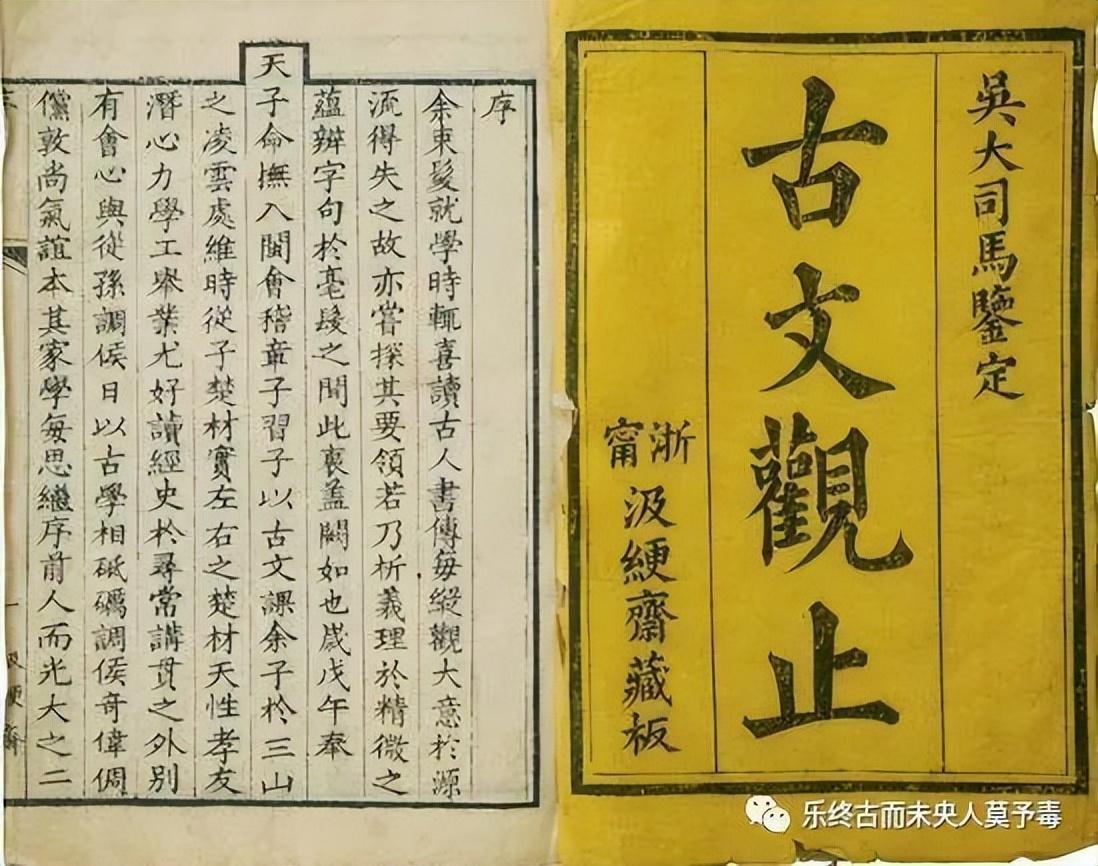 吳大司馬鑒定
古文觀止
浙甯汲綆齋藏板
序
余束髮就學時輒喜讀古人書傳每縱觀大意於源
流得失之故亦嘗探其要領若乃析義理於精微之
蘊辨字句於毫髮之間此衷盖闕如也歲戊午奉
天子命撫入閩會稽章子習子以古文課余子於三山
之凌雲處維時從子楚材實左右之楚材天性孝友
潛心力學工舉業尤好讀經史於尋常講貫之外別
有會心與從孫調侯日以古學相砥礪調侯奇偉倜
儻敦尚氣誼本其家學每思繼序前人而光大之二
乐终古而未央人莫予毒